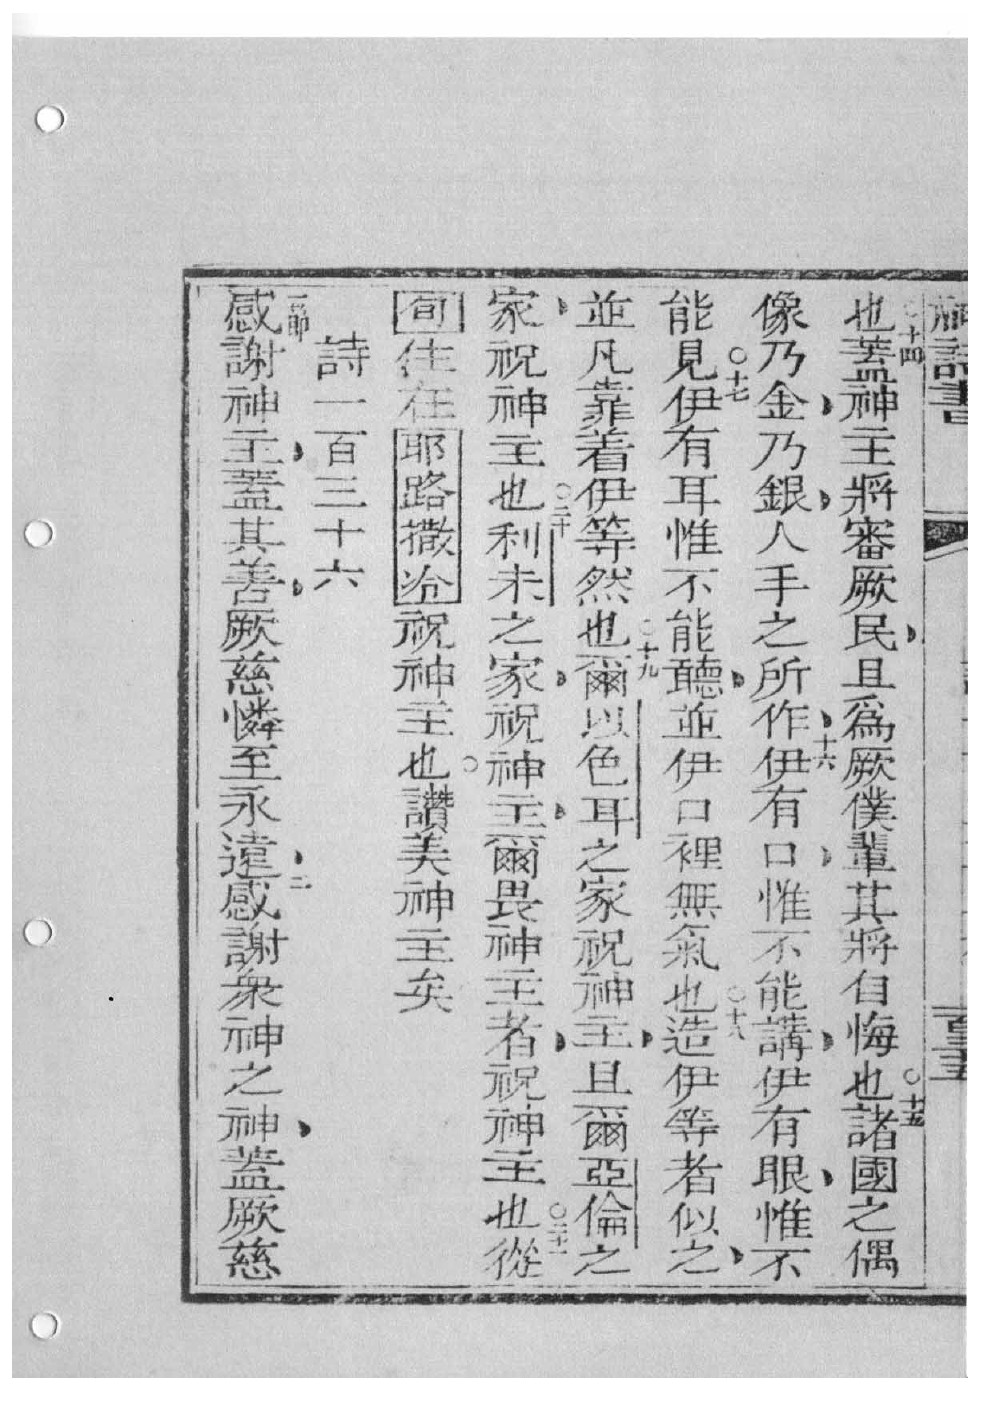 詩書
百三五
也○十四蓋神主將審厥民且爲厥僕輩其將自悔也○十五諸國之偶
像乃金乃銀人手之所作○十六伊有口惟不能講伊有眼惟不
能見○十七伊有耳惟不能聽並伊口裡無氣也○十八造伊等者似之
並凡靠着伊等然也○十九爾以色耳之家祝神主且爾亞倫之
家祝神主也○二十利未之家祝神主爾畏神主者祝神主也○二十一從
旬住在耶路撒冷祝神主也○讚美神主矣
詩一百三十六
一節感謝神主蓋其善厥慈憐至永遠二感謝衆神之神蓋厥慈